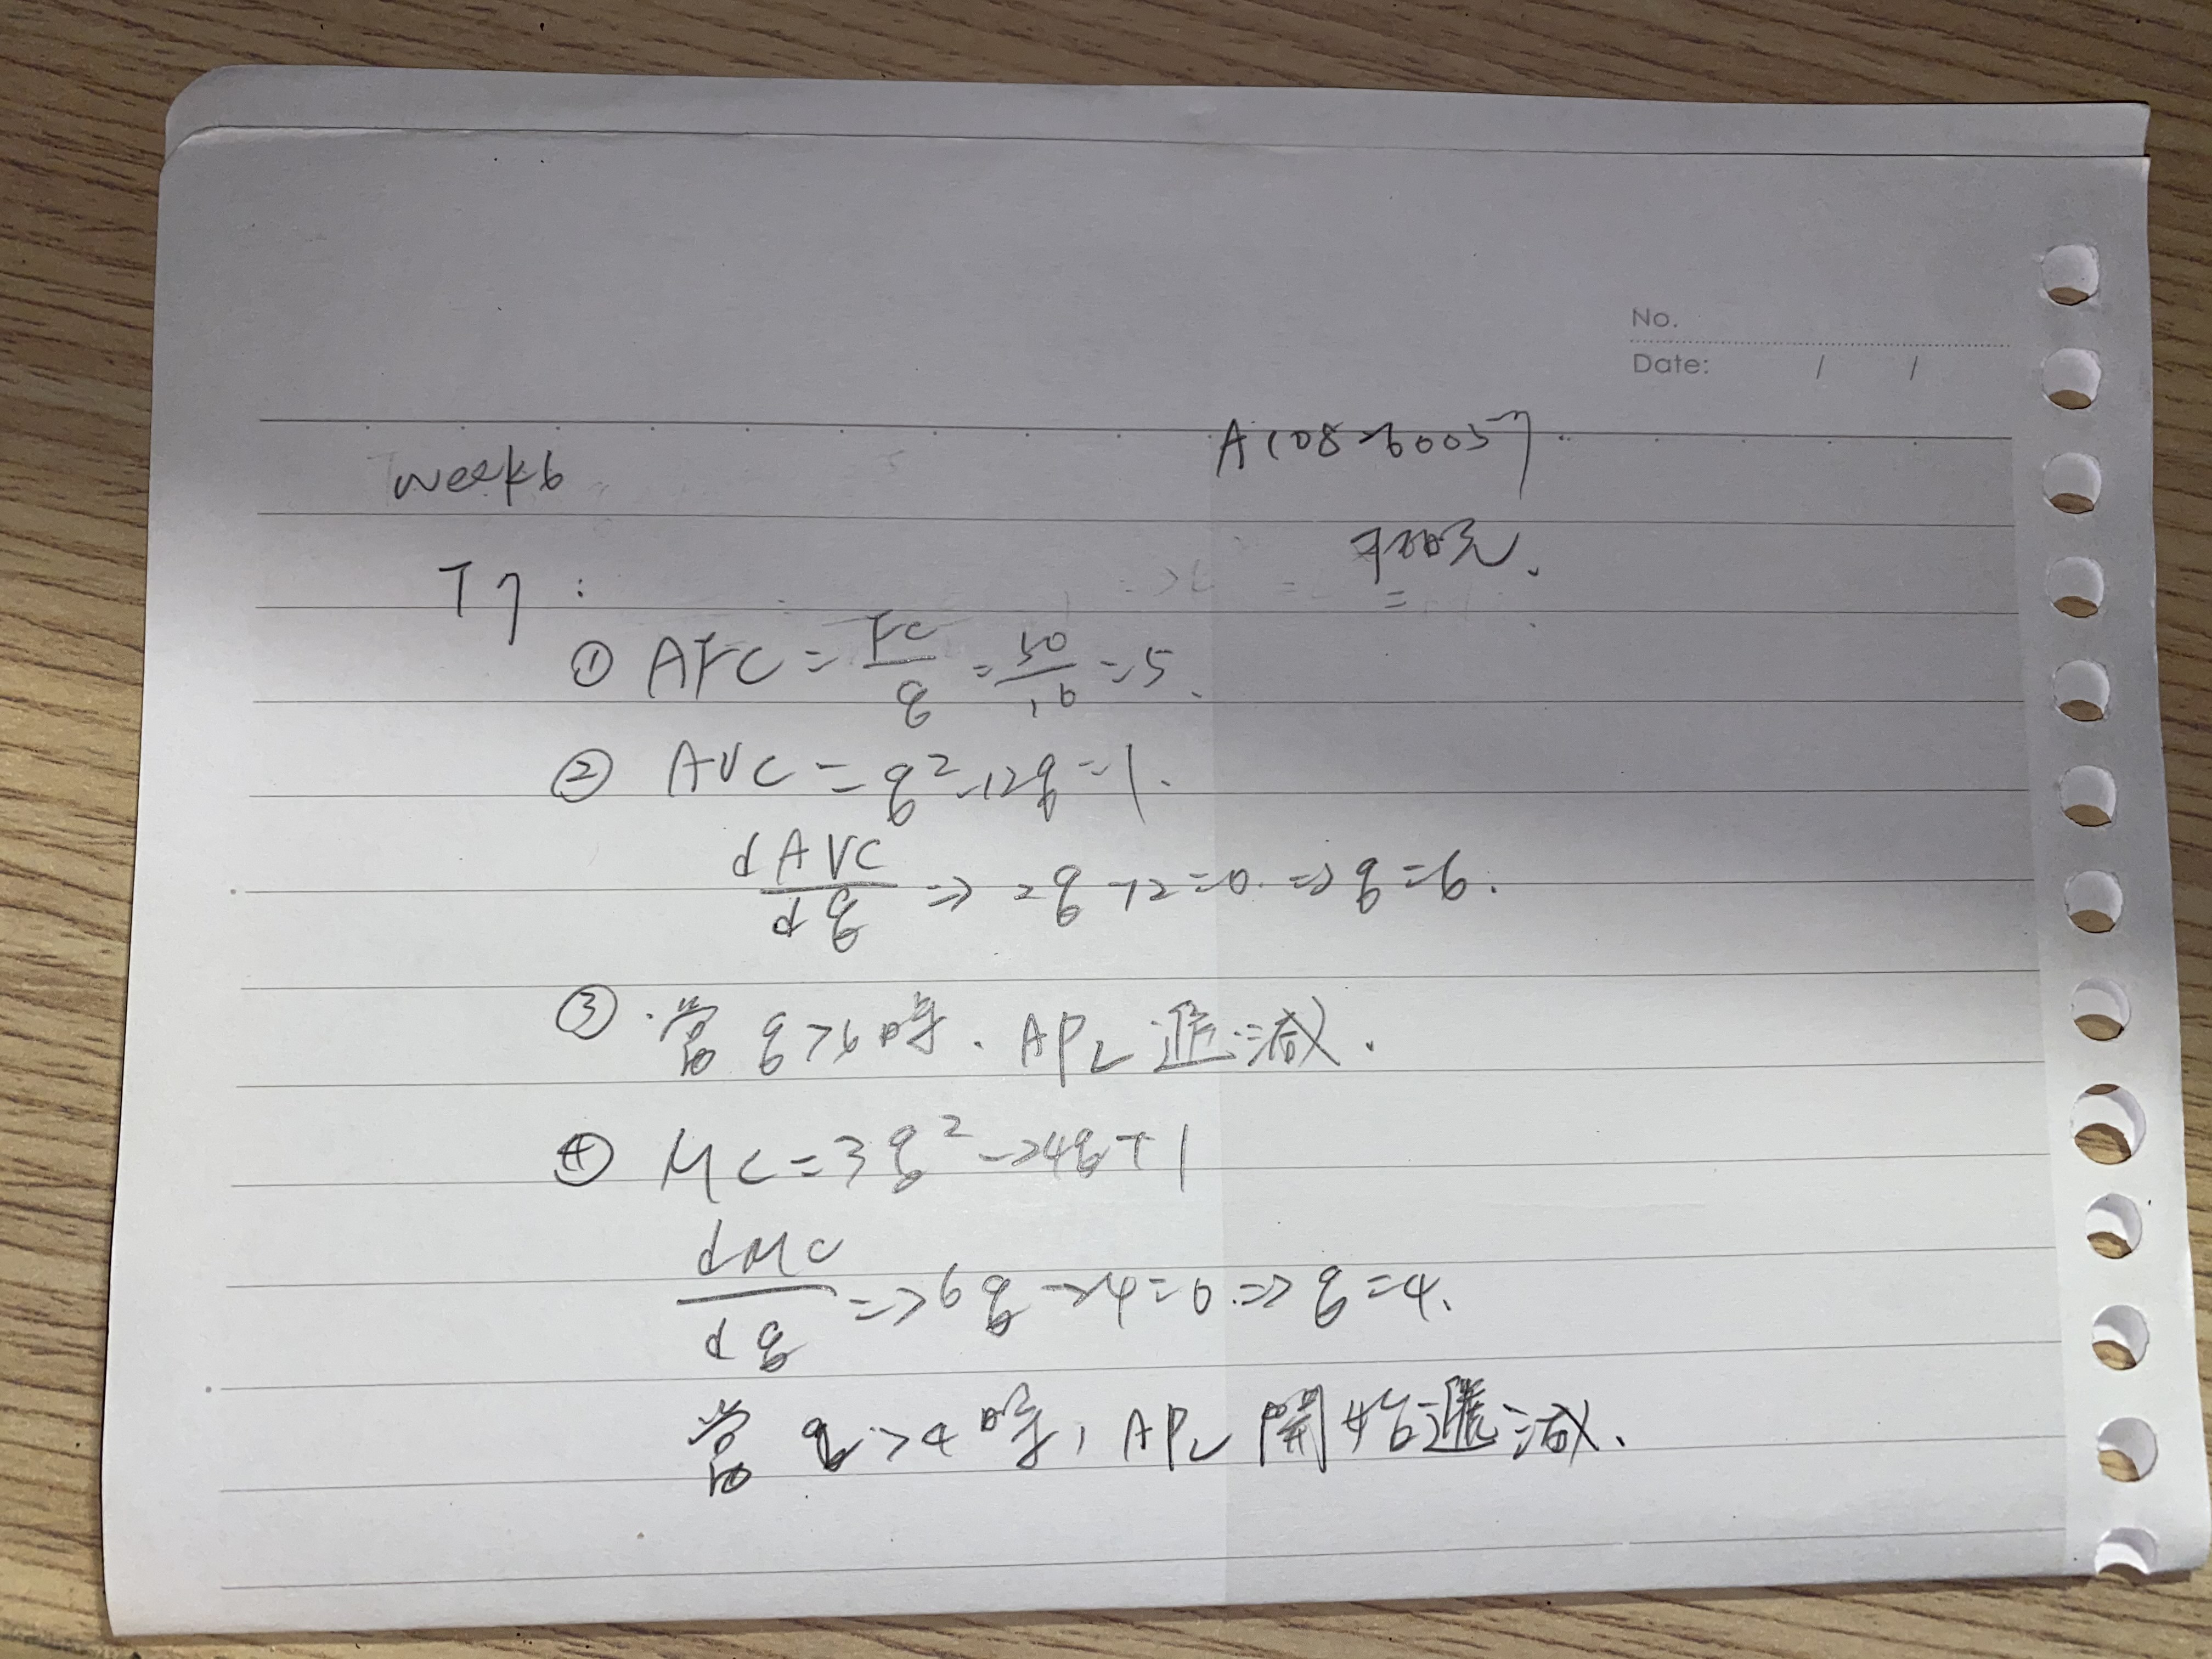 No.
Date: / /
week6
A108260057
T7:
① AFC = FC/q = 50/10 = 5.
② AVC = q² - 12q = 1.
dAVC/dq = 2q - 12 = 0. => q = 6.
③ 當 q > 6 時. APL 遞減.
④ MC = 3q² - 24q + 1
dMC/dq => 6q - 24 = 0 => q = 4.
當 q > 4 時, APL 開始遞減.